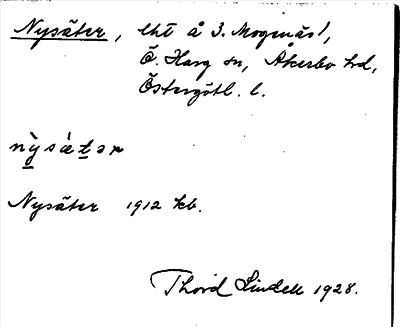 Nysäter, lht å 3. Mogenäs/,
Ö. Harg sn, Åkerbo hd,
Östergötl. l.
nỳsätər
Nysäter 1912 kb.
Thord Lindell 1928.